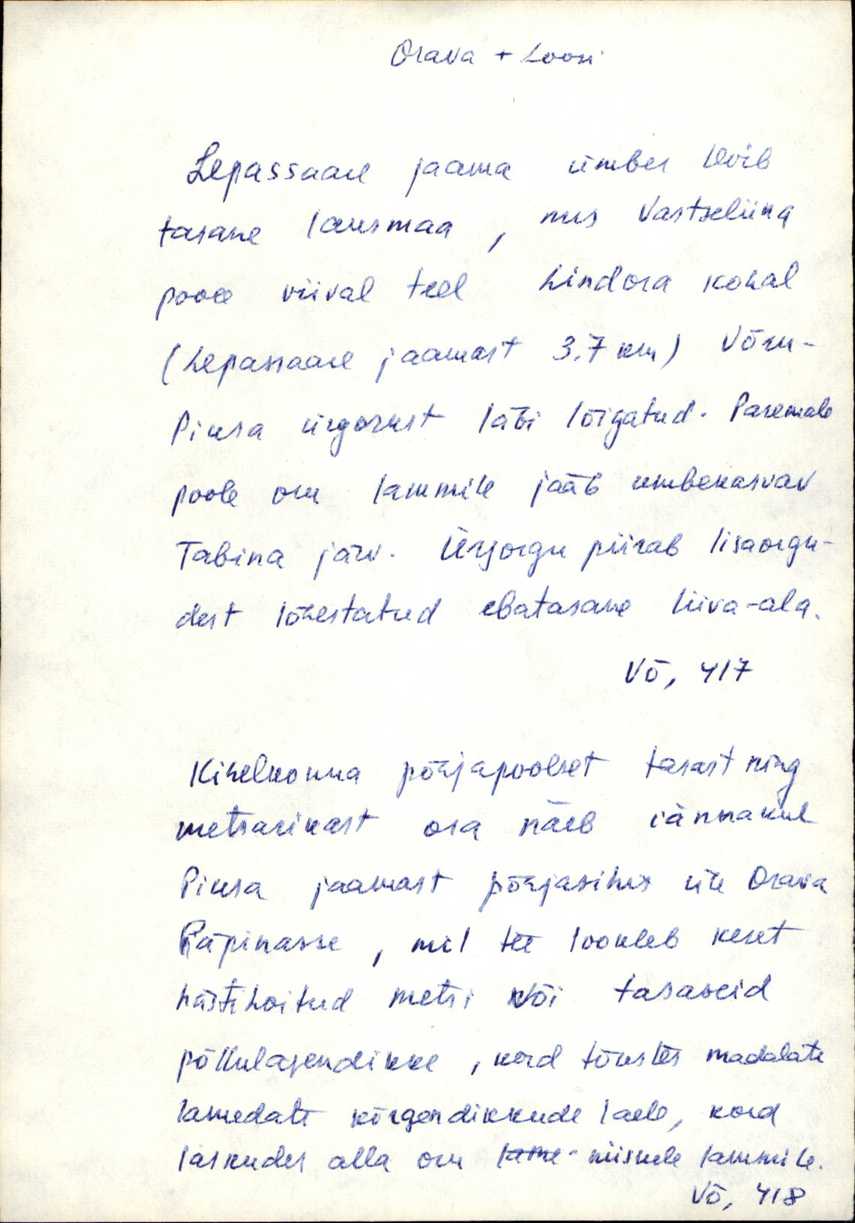 Orava + Loosi
Lepassaare jaama ümber levib
tasane lausmaa, mis Vastseliina
poole viival teel Lindora kohal
(Lepassaare jaamast 3,7 km) Võru-
Piusa ürgorust läbi lõigatud. Paremale
poole oru lammile jääb umbekasvav
Tabina järv. Ürgorgu piirab lisaorgu-
dest lõhestatud ebatasane liiva-ala.
Võ, 417
Kihelkonna põhjapoolset tasast ning
metsarikast osa näeb rännakul
Piusa jaamast põhjasihis üle Orava
Räpinasse, mil tee lookleb keset
hästihoitud metsi või tasaseid
põllulagendikke, kord tõustes madalate
lamedate kõrgendikkude laele, kord
laskudes alla oru niiskele lammile.
Võ, 418